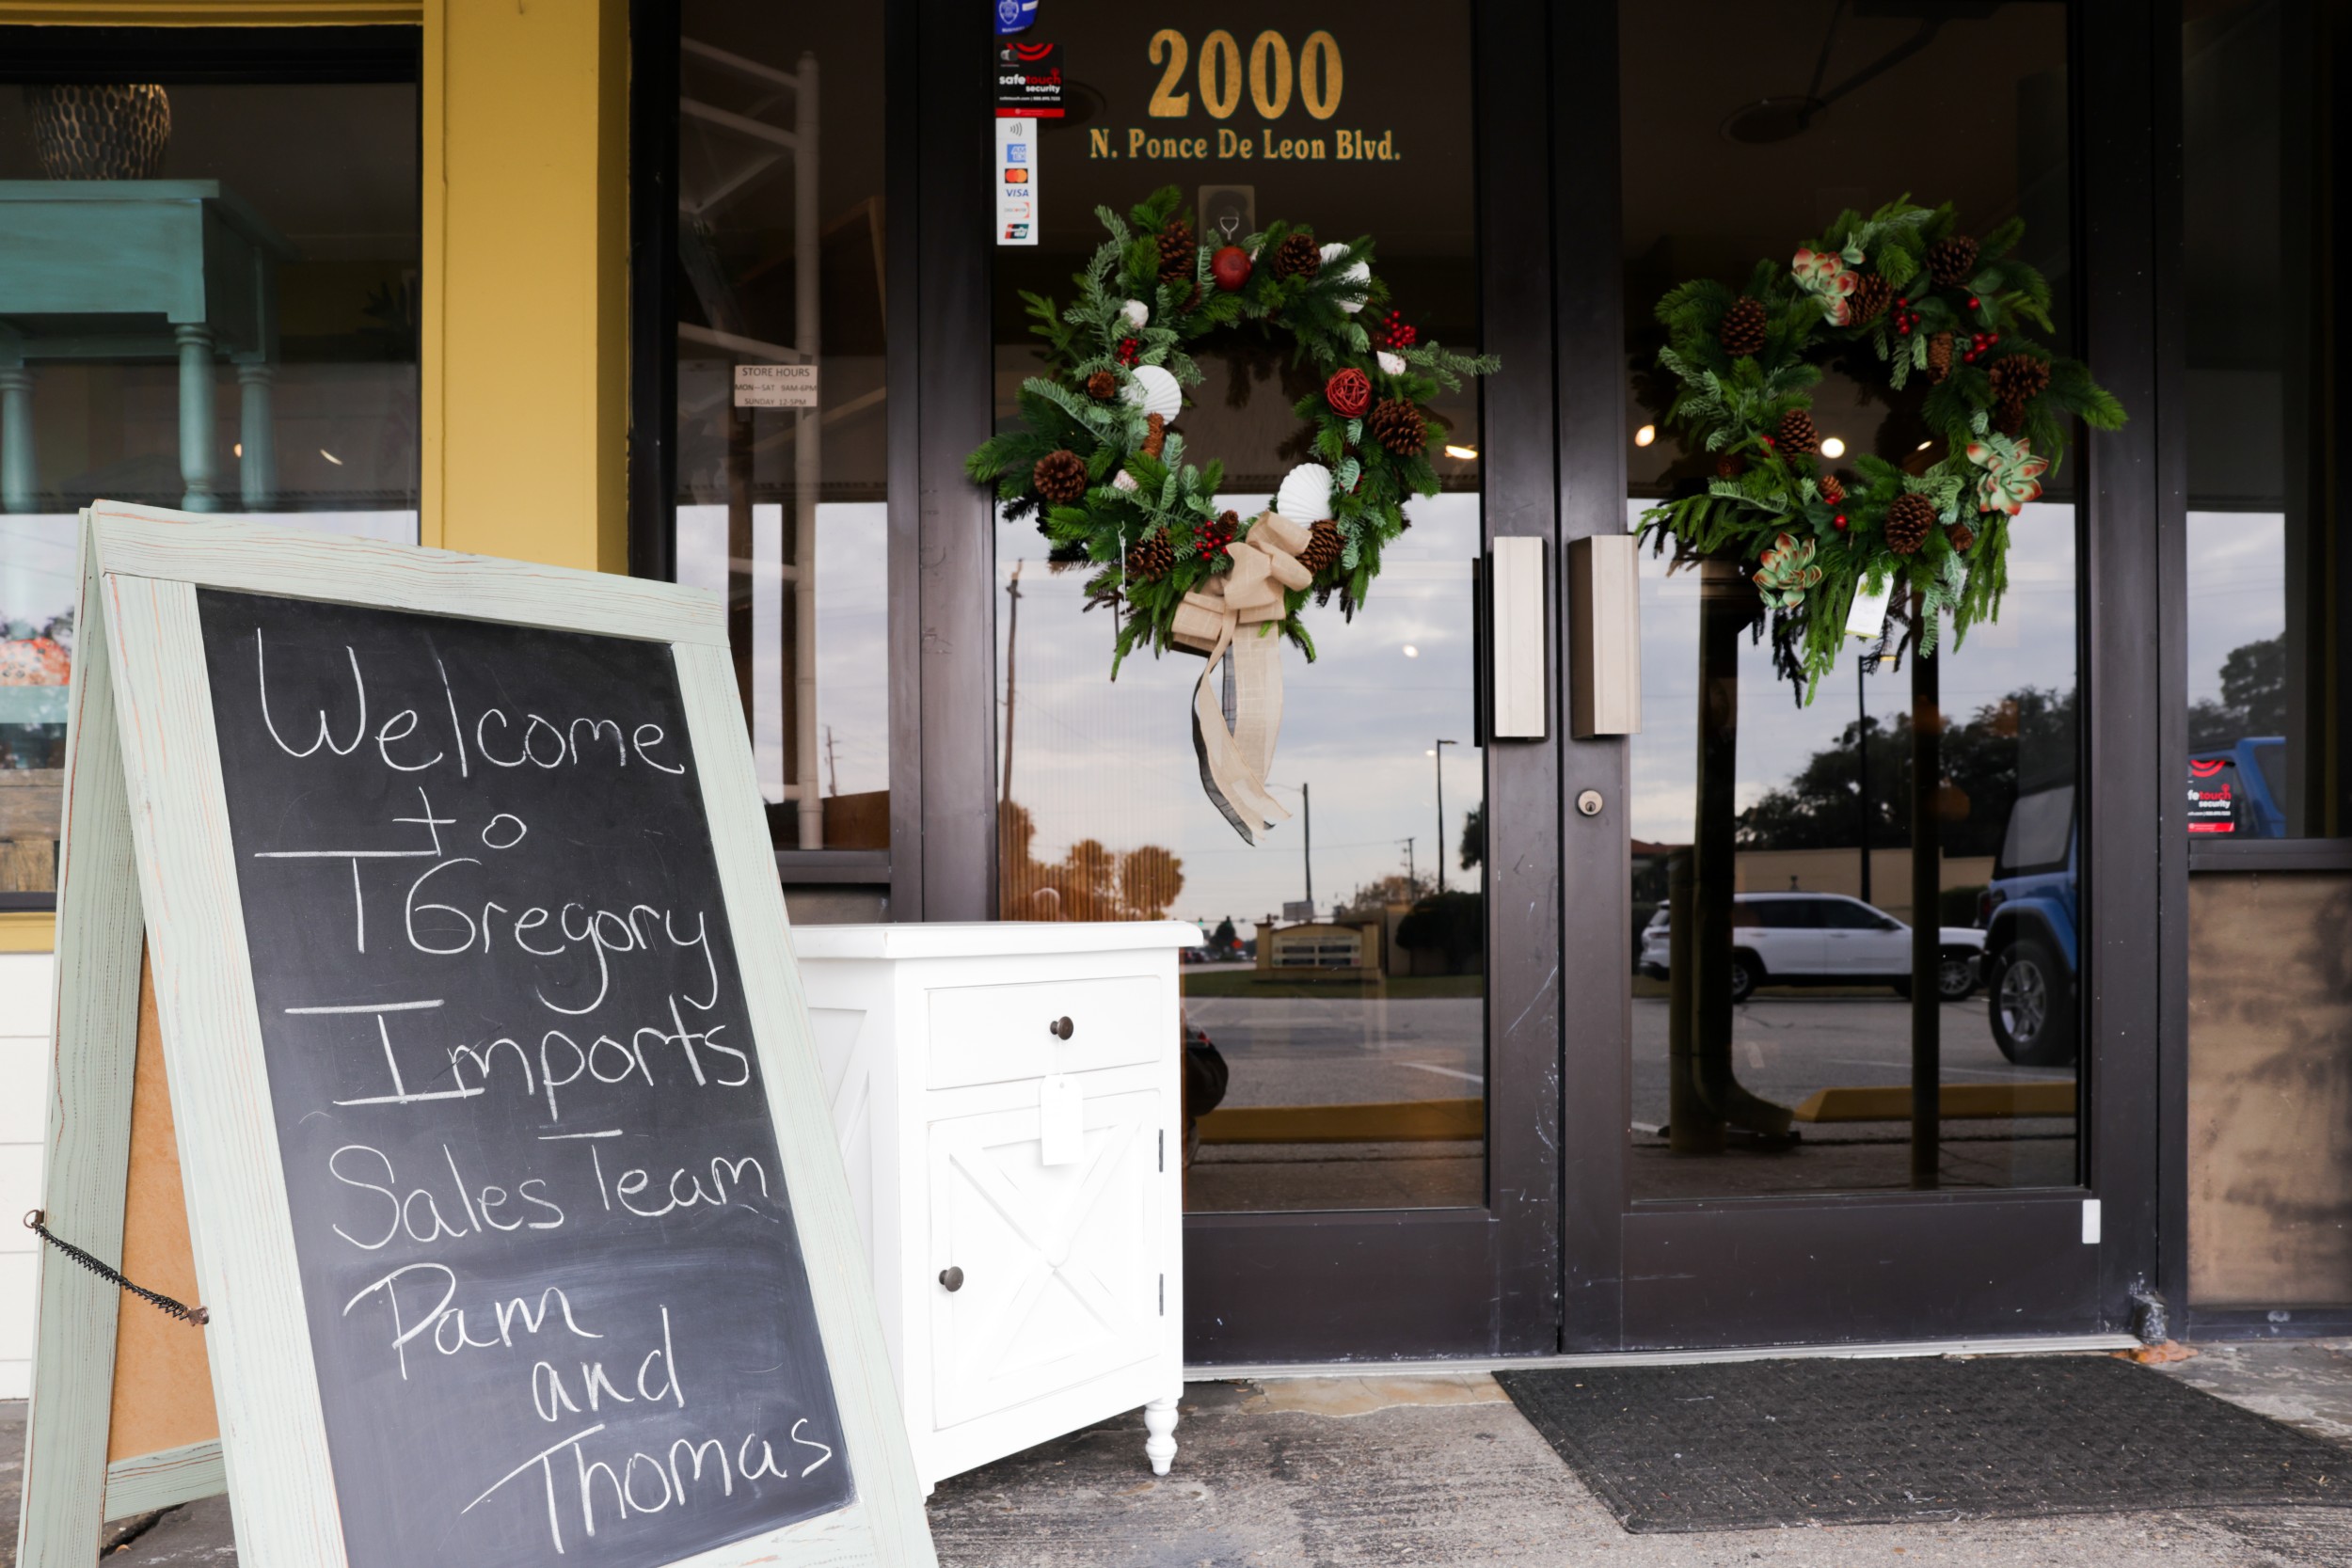 2000
N. Ponce De Leon Blvd.
safetouch
security
VISA
STORE HOURS
MON—SAT 9AM-6PM
SUNDAY 12-5PM
Welcome
to
TGregory
Imports
Sales Team
Pam
and
Thomas
fetouch
security